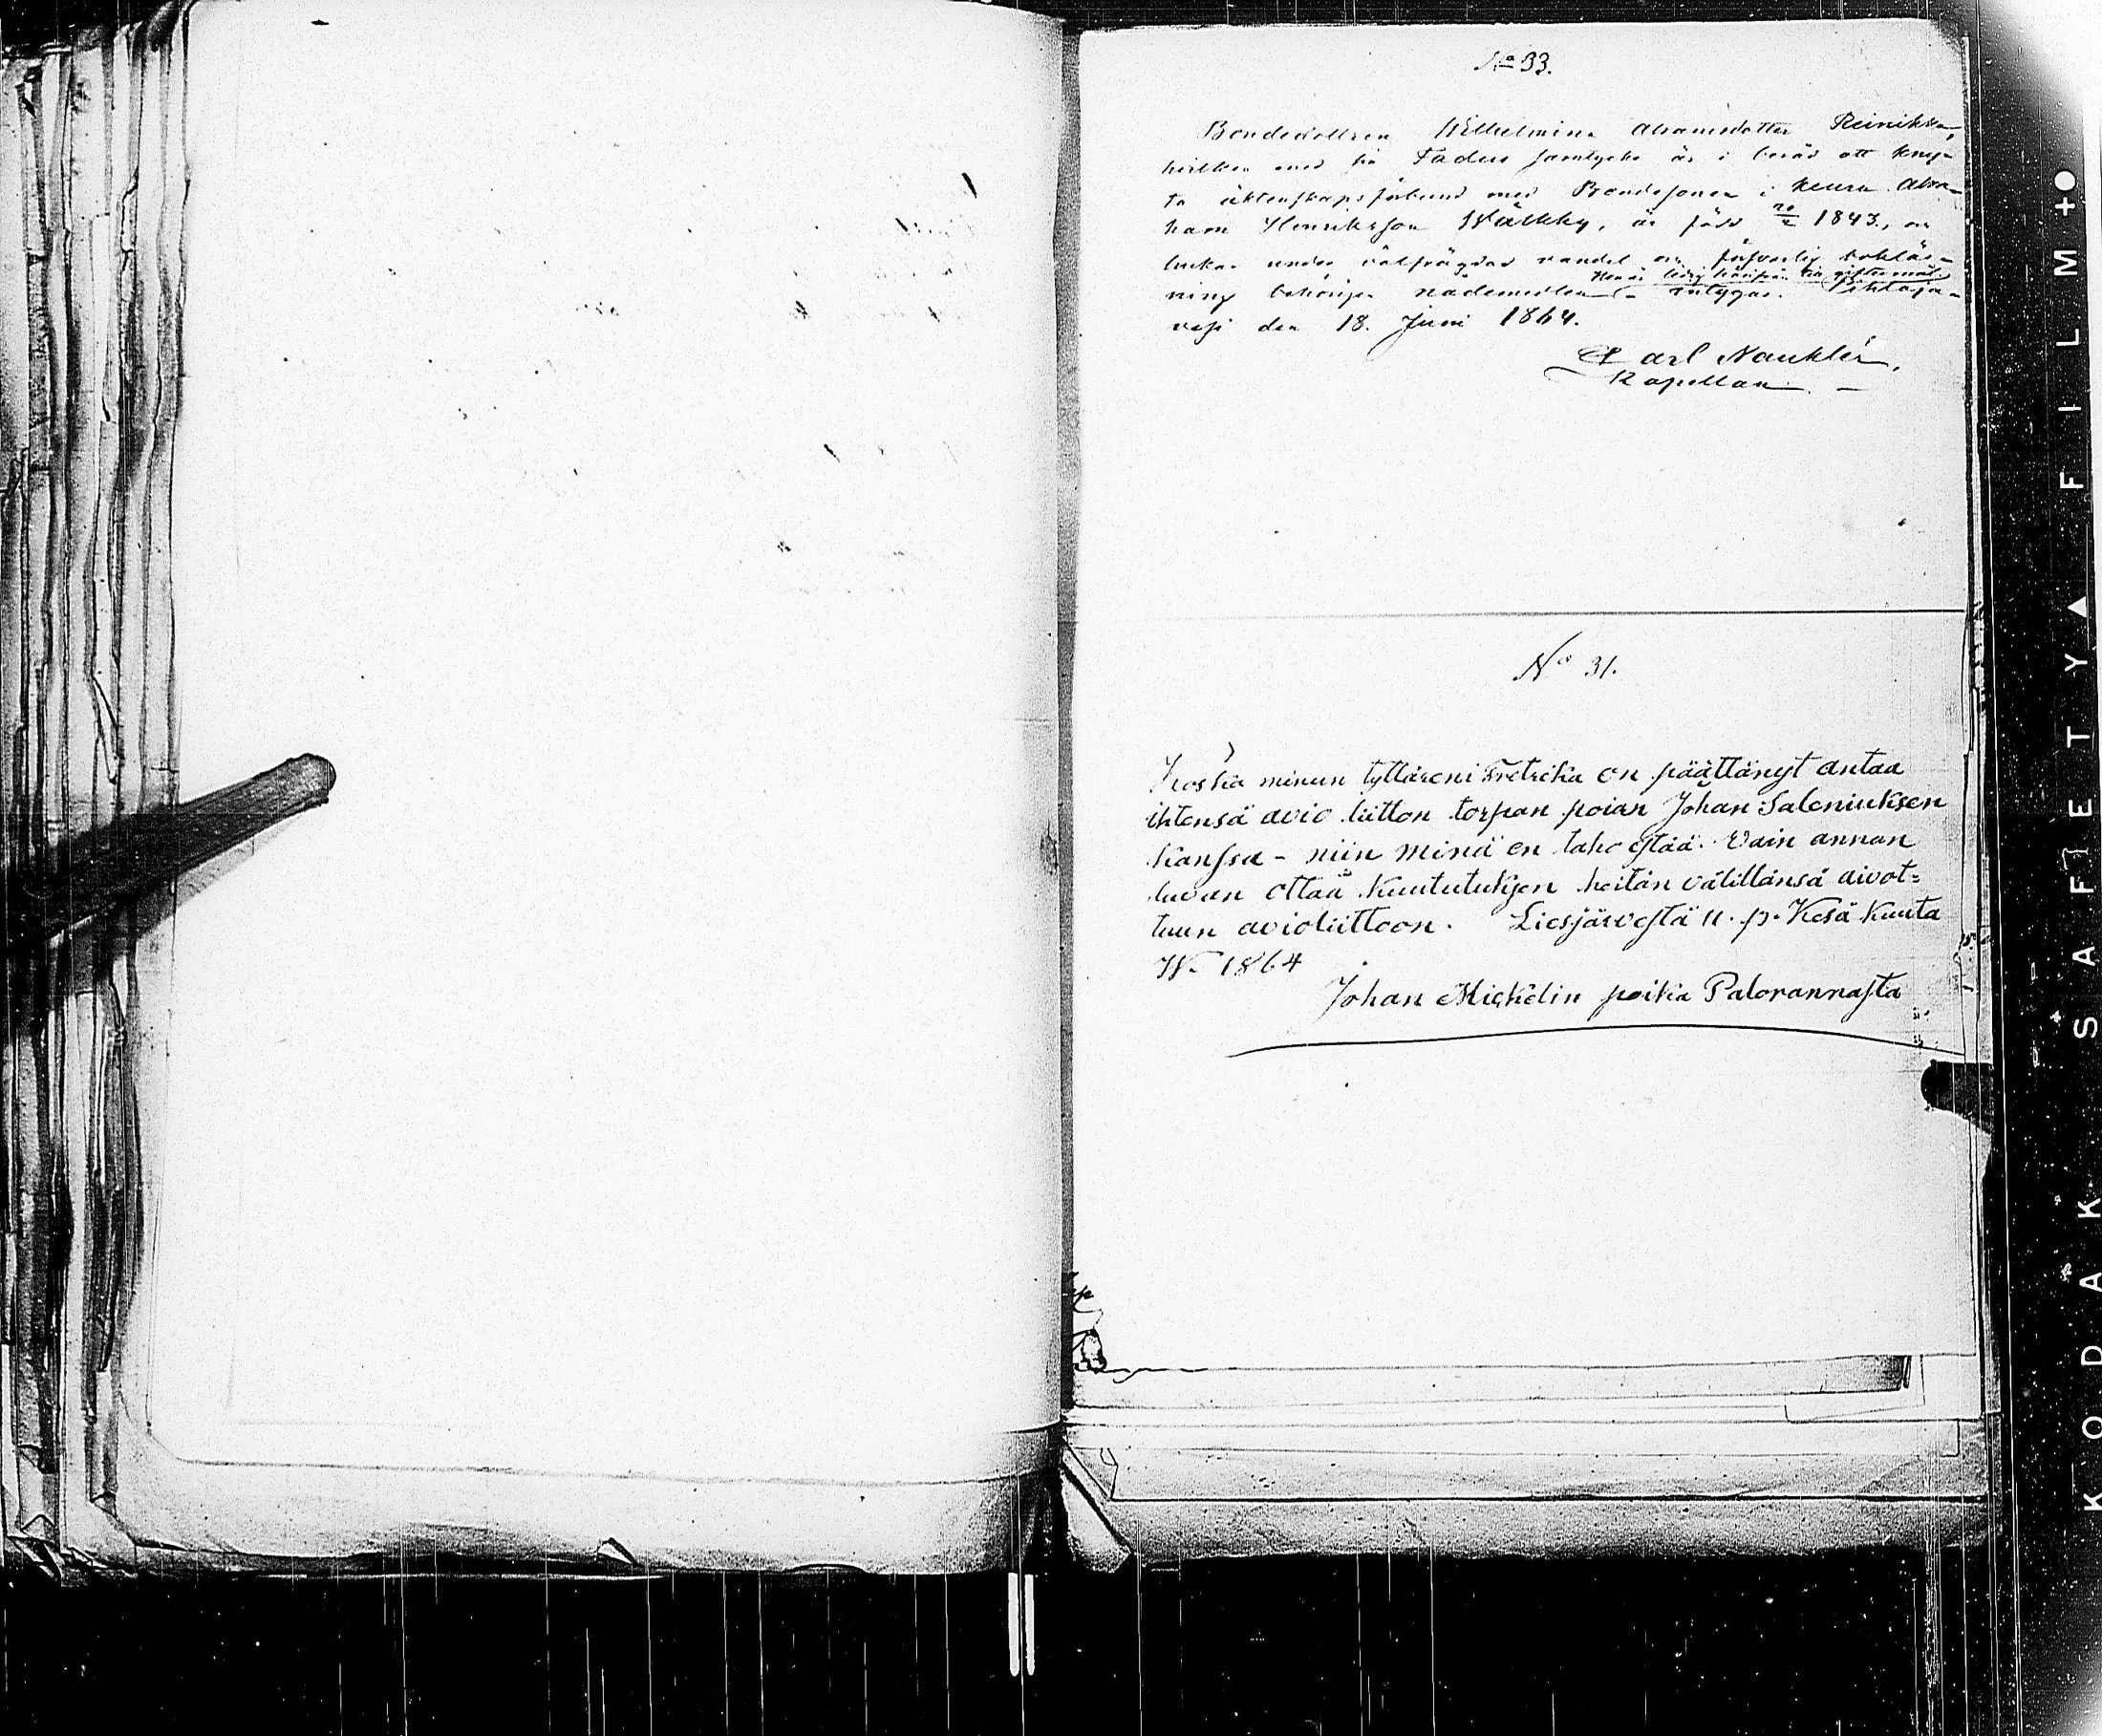 No 33.
Bondedottren Wilhelmina Abramsdotter Reinikka,
hvilken med sin Faders samtycke är i beråd att kny-
ta äktenskapsförbund med Bondesonen i Keuru Abra-
ham Henriksson Wälkky, är född 20/2 1843, och
brukar under välfrägdad vandel en försvarlig boklär-
Hon är ledig härifrån till giftermål.
ning behörigen nademedlen - intygas. Pihlaja-
vesi den 18. Juni 1864.
Carl Nauklér,
Kapellan.
No 31.
Koska minun tyttäreni Fretrika on päättänyt antaa
ihtensä avio liitton torpan poian Johan Saleniuksen
kanssa - niin minä en taho estää. Vain annan
luvan ottaa kuulutuksen heitän välillänsä aivot-
tuun avioliittoon. Liesjärvestä 11. p. Kesä kuuta
W. 1864
Johan Mickelin poika Palorannasta
KODAK SAFETY FILM